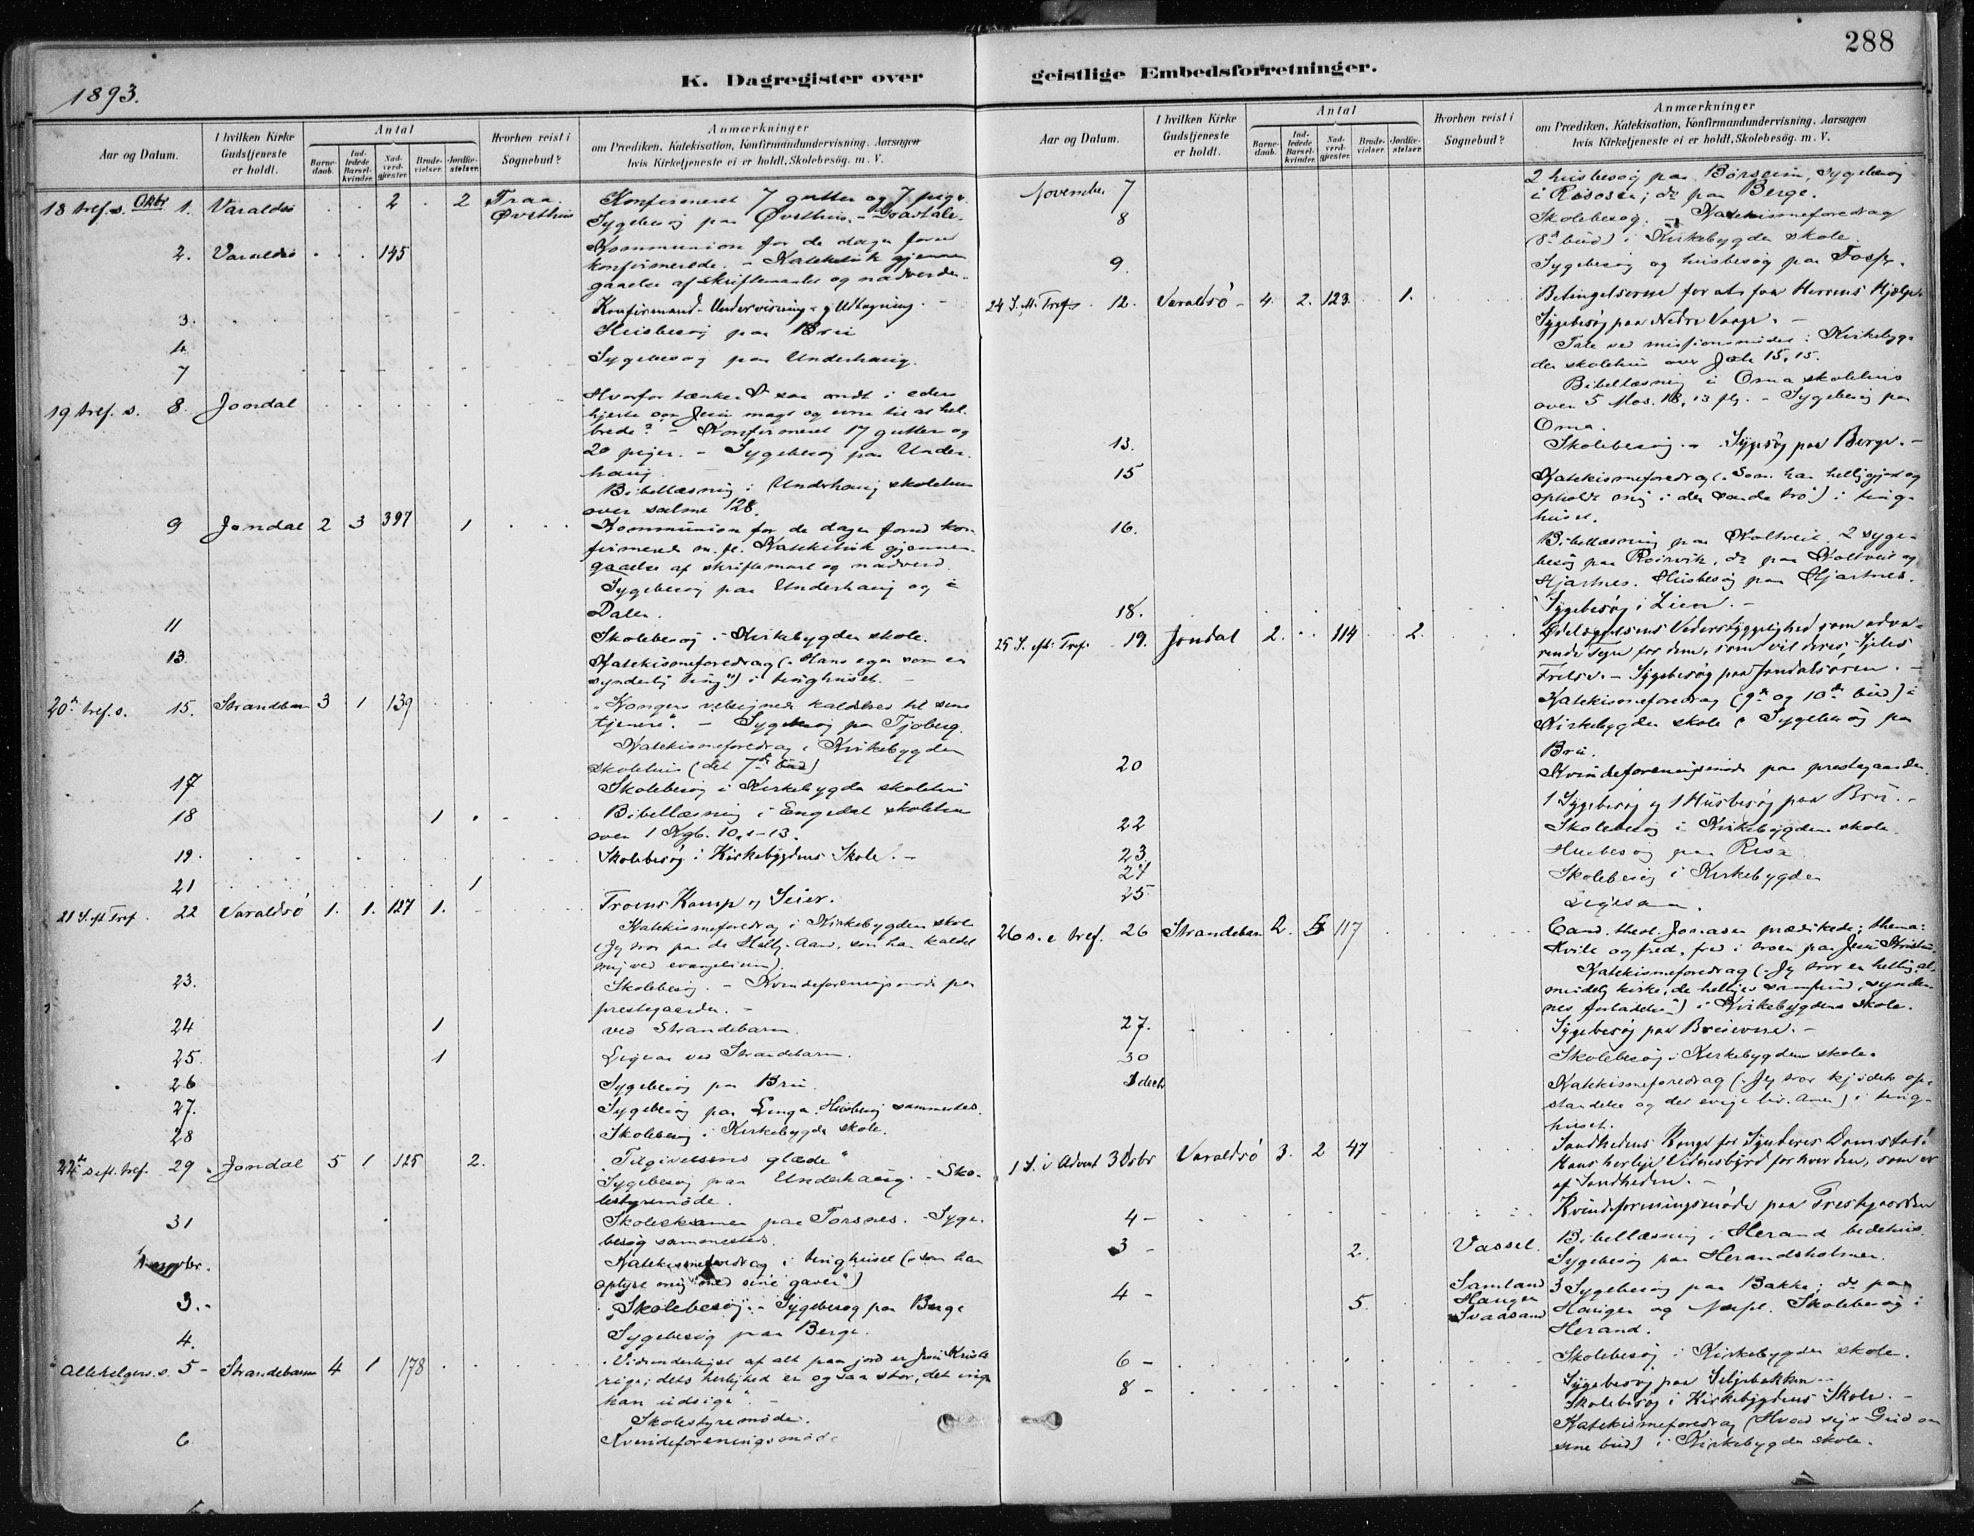 288
K. Dagregister over geistlige Embedsforretninger.
1893.
Aar og Datum.
I hvilken Kirke Gudstjeneste er holdt.
Antal
Barne-daab.
Ind-ledede Barsel-kvinder.
Nad-verd-gjester.
Brude-vielser.
Jordfæ-stelser.
Hvorhen reist i Sognebud?
Anmærkninger
om Prædiken, Katekisation, Konfirmandundervisning. Aarsagen
hvis Kirketjeneste ei er holdt. Skolebesøg. m. V.
18 tref. s. Oktbr 1. Varaldsö 2 2 Traa. Øvsthus Konfirmeret 7 gutter og 7 piger
Sygebesøg paa Øvsthus.
2. Varaldsö 145 Kommunion for de dagen forud
konfirmerede. - Katekisk gjennem-
gaaelse af skriftemaalet og nadverden
Konfirmand-Undervisning og Udtagning. -
3. Husbesøg paa Brui
4 Sygebesøg paa Underhaug.
7
19 tref. s. 8. Jondal Hvorfor tænker I saa ondt i eders
hjerte om Jesu magt og evne til at hel-
brede? - Konfirmeret 17 gutter og
20 piger. - Sygebesøg paa Under-
haug.
Bibellæsning i Underhaug skolehus
over salme 128.
9 Jondal 2 3 397 1 Kommunion for de dagen forud kon-
firmerede m. fl. Katekisk gjennem-
gaaelse af skriftemaal og nadverd.
Sygebesøg paa Underhaug og i
Dalen.
11 Skolebesøg i Kirkebygden skole.
13. Katekismeforedrag („Hans egen som en
synderlig ting") i tinghuset. -
20de tref. s. 15. Strandebarm 3 1 139 „Kongens velsignede kaldelse til sine
tjenere". - Sygebesøg paa Tjoberg.
Katekismeforedrag i Kirkebygden
skolehus (det 7de bud)
17 Skolebesøg i Kirkebygden skolehus
18 1 Bibellæsning i Engedal skolehus
over 1 Kgb. 10, 1-13.
19. Skolebesøg i Kirkebygdens Skole. -
21 1
21 S. eft Tref. 22 Varaldsö 1. 1. 127 1. Troens Kamp og Seier.
Katekismeforedrag i Kirkebygden skole
(Jeg tror paa den Hellig-Aand, som har kaldet
mig ved evangelium).
23. Skolebesøg. - Kvindeforeningsmøde paa
prestegaarden. -
24 1 ved Strandebarm.
25. 1 ved Strandebarm.
26 Sygebesøg paa Brui.
27. Sygebesøg paa Linga. Husbesøg sammesteds.
28 Skolebesøg i Kirkebygden skole.
22de s eft. tref. 29 Jondal 5 1 125 2. „Tilgivelsens glæde"
Sygebesøg paa Underhaug. - Sko-
lestyremøde.
31 Skoleeksamen paa Torsnes. - Syge-
besøg sammesteds.
Novbr. Katekismeforedrag i tinghuset („som har
oplyst mig med sine gaver")
3. - Skolebesøg. - Sygebesøg paa Berge
4. Sygebesøg paa Berge.
Allehelgens. s. 5 - Strandebarm 4 1 178 „Vidunderligst af alt paa jord er Jesu Kristi
rige; dets herlighed er ogsaa stor, det ingen
kan udsige". -
Skolestyremøde.
6 Kvindeforeningsmøde
Aar og Datum.
I hvilken Kirke Gudstjeneste er holdt.
Antal
Barne-daab.
Ind-ledede Barsel-kvinder.
Nad-verd-gjester.
Brude-vielser.
Jordfæ-stelser.
Hvorhen reist i Sognebud?
Anmærkninger
om Prædiken, Katekisation, Konfirmandundervisning. Aarsagen
hvis Kirketjeneste ei er holdt. Skolebesøg. m. V.
November 7 2 husbesøg paa Børsheim, Sygebesøg
i Rosøsen; do paa Berge.
8 Skolebesøg. - Katekismeforedrag
(8de bud) i Kirkebygden skole.
9. Sygebesøg og husbesøg paa Fosse.
24 S. eft. Tref. 12. Varaldsö 4. 2. 123. 1. Betingelserne for at faa Herrens Hjælp.
Sygebesøg paa Nedre Vaage. -
Tale ved missionsmødet i Kirkebyg-
den skolehus over Joh. 15, 15.
Bibellæsning i Oma skolehus
over 5 Mos. 18, 13 flg. - Sygebesøg paa
Oma.
13. Skolebesøg. - Sygebesøg paa Berge. -
15 Katekismeforedrag („Som har helliggjort og
opholdt mig i den sande tro") i ting-
huset.
16. Bibellæsning paa Koltveit. 2 syge-
besøg paa Røirvik, do paa Koltveit og
Hjartnes. Husbesøg paa Hjartnes.
18. Sygebesøg i Lien. -
25 S. eft. Tref. 19. Jondal 2. 114 2. Ødelæggelsens Vederstyggelighed som adva-
rende Tegn for dem, som vil deres Sjæls
Frelse. - Sygebesøg paa Jondalsøren. -
Katekismeforedrag (9de og 10de bud) i
Kirkebygden skole. Sygebesøg paa
Brui.
20 Kvindeforeningsmøde paa prestegaarden
1 Sygebesøg og 1 Husbesøg paa Brui. -
22 Skolebesøg i Kirkebygden skole.
23. Husbesøg paa
24 Skolebesøg i Kirkebygden
25
26 s. e tref. 26 Strandebarm 2. 117 Cand. theol. Jonasen prædikede; thema:
Hvile og fred, fred i troen paa Jesu Kristus
Katekismeforedrag („Jeg tror en hellig, al-
mindelig kirke, de helliges samfund, synder-
nes forladelse") i Kirkebygdens skole.
27. Sygebesøg paa
30 Skolebesøg i Kirkebygden skole.
1 decbr Katekismeforedrag („Jeg tror kjødets op-
standelse og det evige liv. Amen) i ting-
huset.
1 S. i Advent 3 Dsbr Varaldsö 3. 2 47 Sandhedens Konge for Synderes Domstol:
Hans herlige Vidnesbyrd for hver den, som er
af Sandheden. -
4 - Kvindeforeningsmøde paa Prestegaarden
3 - 2. Vassel. Bibellæsning i Herand bedehus.
Sygebesøg paa Herandsholmen.
4 - 5. Samland Haugen Svaasand 3 Sygebesøg paa Bakke; do paa
Haugen og Skolebesøg i
Herand.
6 - Skolebesøg i Kirkebygden skole.
8 - Sygebesøg paa Seljebakken -
Skolebesøg i Kirkebygdens Skole. -
Katekismeforedrag (Hvad siger Gud om
sine bud) i Kirkebygden skole.